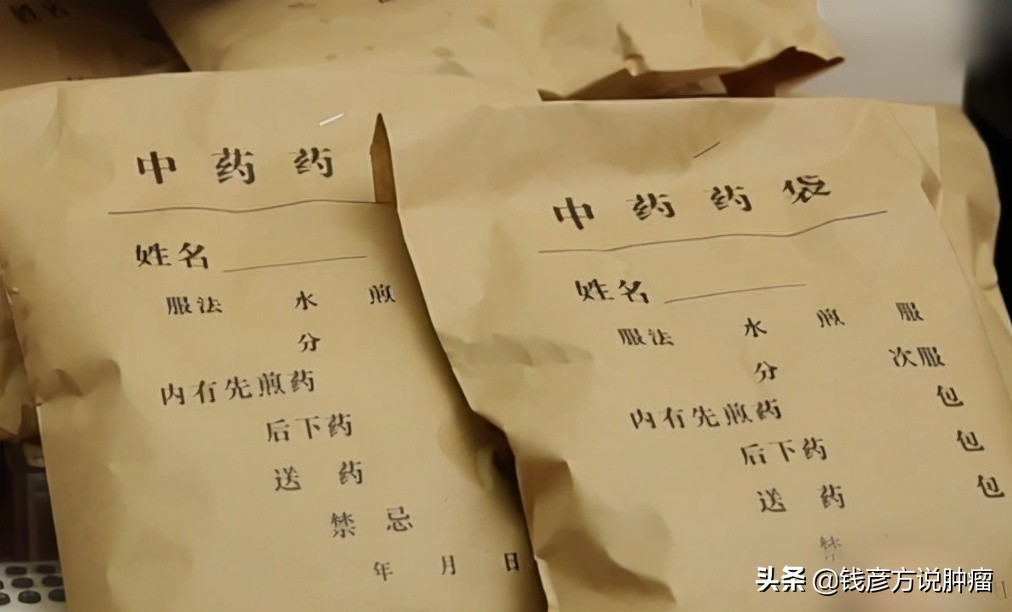 姓名
中药药
姓名
服法 水 煎
分
内有先煎药
后下药
送 药
禁 忌
年 月 日
中药药袋
姓名
服法 水 煎 服
分 次服
内有先煎药 包
后下药 包
送 药 包
禁
头条 @钱彦方说肿瘤